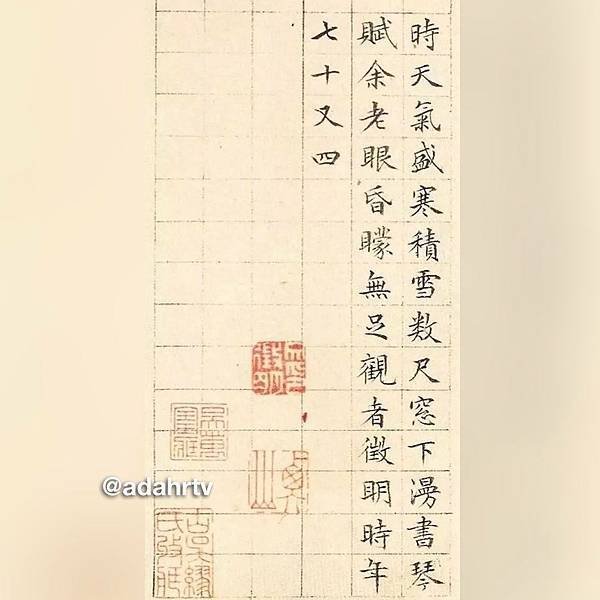 時天氣盛寒積雪数尺窓下漫書琴
賦余老眼昏矇無足觀者徴明時年
七十又四
@adahrtv